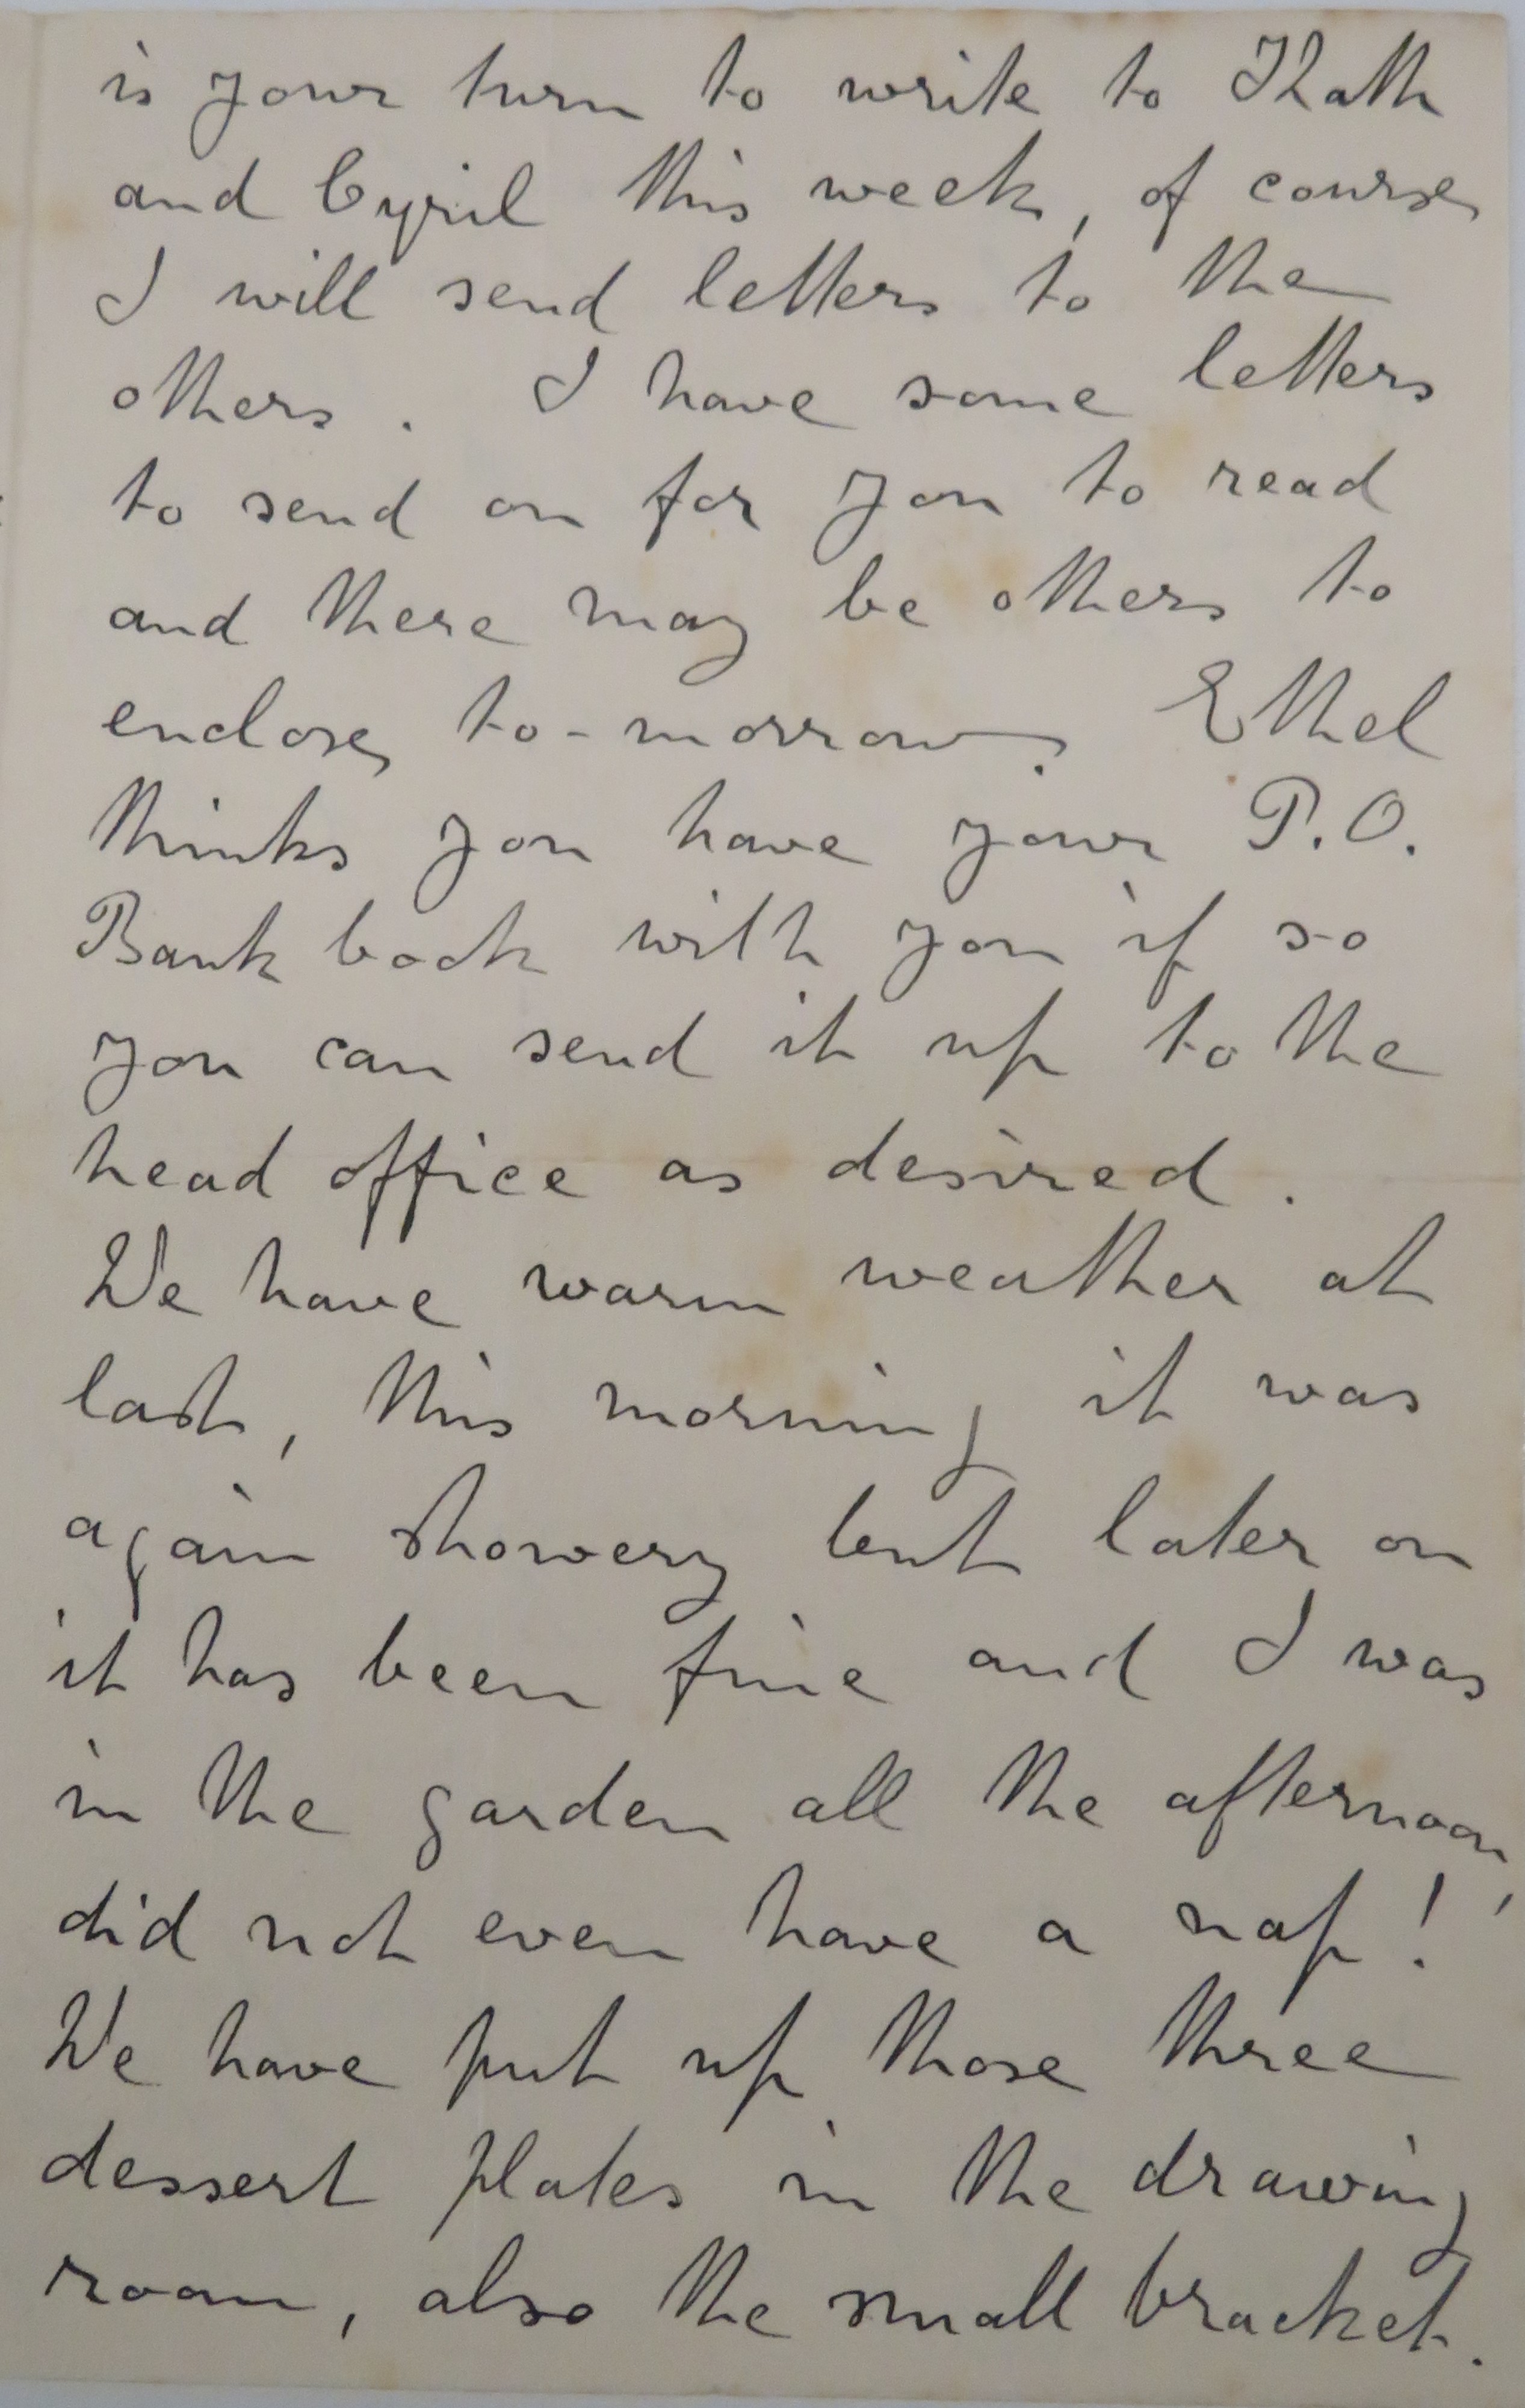 is your turn to write to Kath
and Cyril this week, of course
I will send letters to the
others. I have some letters
to send on for you to read
and there may be others to
enclose to-morrow. Ethel
thinks you have your P.O.
Bank book with you if so
you can send it up to the
head office as desired.
We have warm weather at
last, this morning it was
again showery but later on
it has been fine and I was
in the garden all the afternoon,
did not even have a nap!
We have put up those three
dessert plates in the drawing
room, also the small bracket.